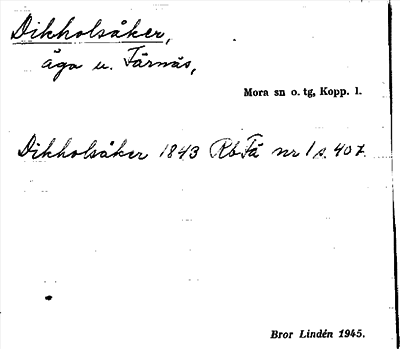 Dikholsåker,
äga u. Färnäs,
Mora sn o. tg, Kopp. l.
Dikholsåker 1843 Rb Fä nr 1 s. 407.
Bror Lindén 1945.